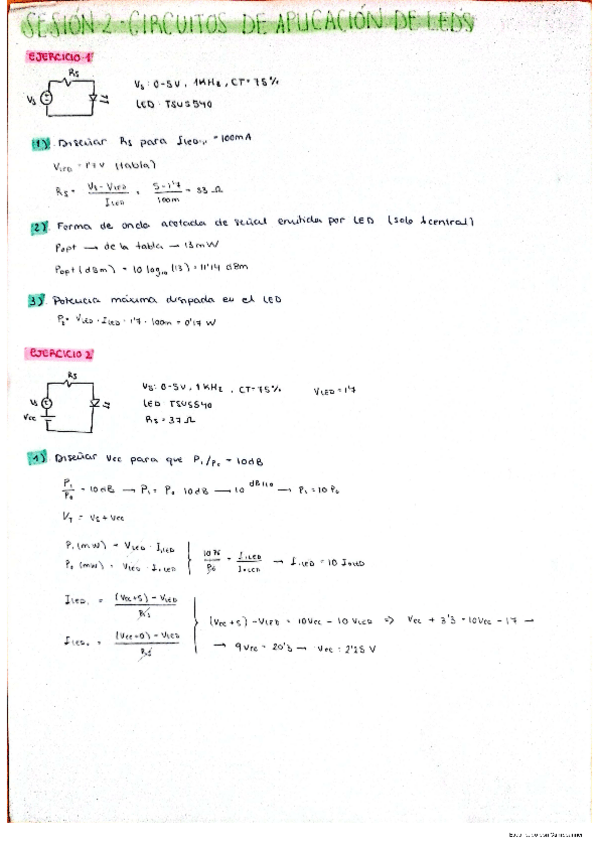 SESIÓN 2 - CIRCUITOS DE APLICACIÓN DE LEDS
EJERCICIO 1
Rs
Vs
Vs: 0-5V, 1KHz, CT=75%
LED: TSUS540
1) Diseñar Rs para ILED = 100mA
VLED = 1'7V (tabla)
Rs = (Vs - VLED) / ILED = (5-1'7) / 100m = 33 Ω
2) Forma de onda acotada de señal emitida por LED (solo λcentral)
Popt → de la tabla → 13mW
Popt (dBm) = 10 log10 (13) = 11'14 dBm
3) Potencia máxima disipada en el LED
VLED · ILED = 1'7 · 100m = 0'17 W
EJERCICIO 2
Rs
Vs
Vcc
Vs: 0-5V, 1KHz, CT=75%
VLED = 1'7
LED: TSUS540
Rs = 37 Ω
1) Diseñar Vcc para que P1/P0 = 10dB
P1/P0 = 10dB → P1 = P0 10dB → 10^dB/10 → P1 = 10 P0
VT = Vs + Vcc
P1 (mW) = VLED · I1LED
P0 (mW) = VLED · I0LED
I1LED / I0LED → I1LED = 10 I0LED
ILED1 = ((Vcc+5) - VLED) / Rs
ILED0 = ((Vcc+0) - VLED) / Rs
(Vcc+5) - VLED = 10Vcc - 10 VLED => Vcc + 3'3 = 10Vcc - 17 →
→ 9Vcc = 20'3 → Vcc = 2'25 V